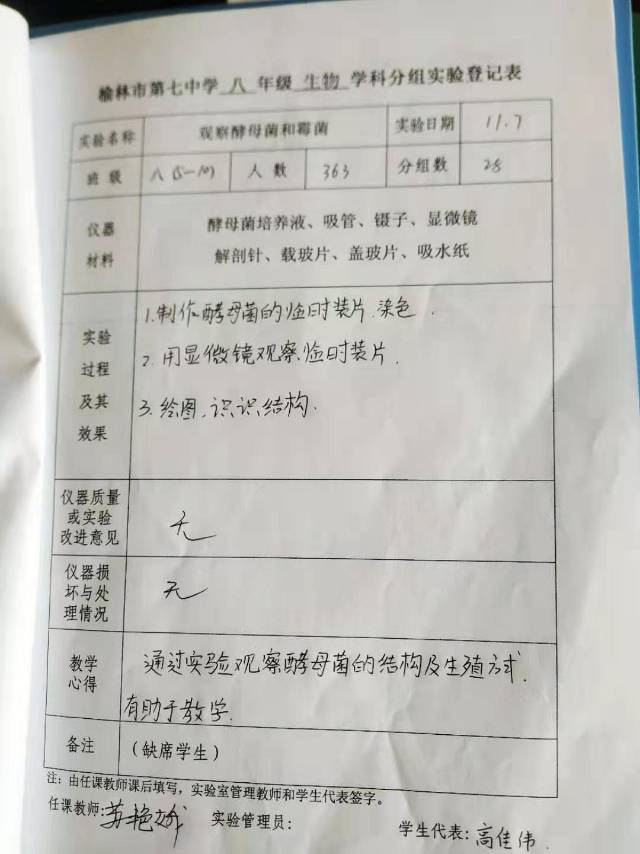 榆林市第七中学 八 年级 生物 学科分组实验登记表
实验名称 观察酵母菌和霉菌 实验日期 11.7
班 级 八(5-10) 人 数 363 分组数 28
仪器
材料
酵母菌培养液、吸管、镊子、显微镜
解剖针、载玻片、盖玻片、吸水纸
实验
过程
及其
效果
1.制作酵母菌的临时装片.染色.
2.用显微镜观察临时装片.
3.绘图.识识结构.
仪器质量
或实验
改进意见
无
仪器损
坏与处
理情况
无
教学
心得
通过实验观察酵母菌的结构及生殖方式.
有助于教学.
备注 (缺席学生)
注:由任课教师课后填写,实验室管理教师和学生代表签字。
任课教师:苏艳娥 实验管理员: 学生代表:高佳伟